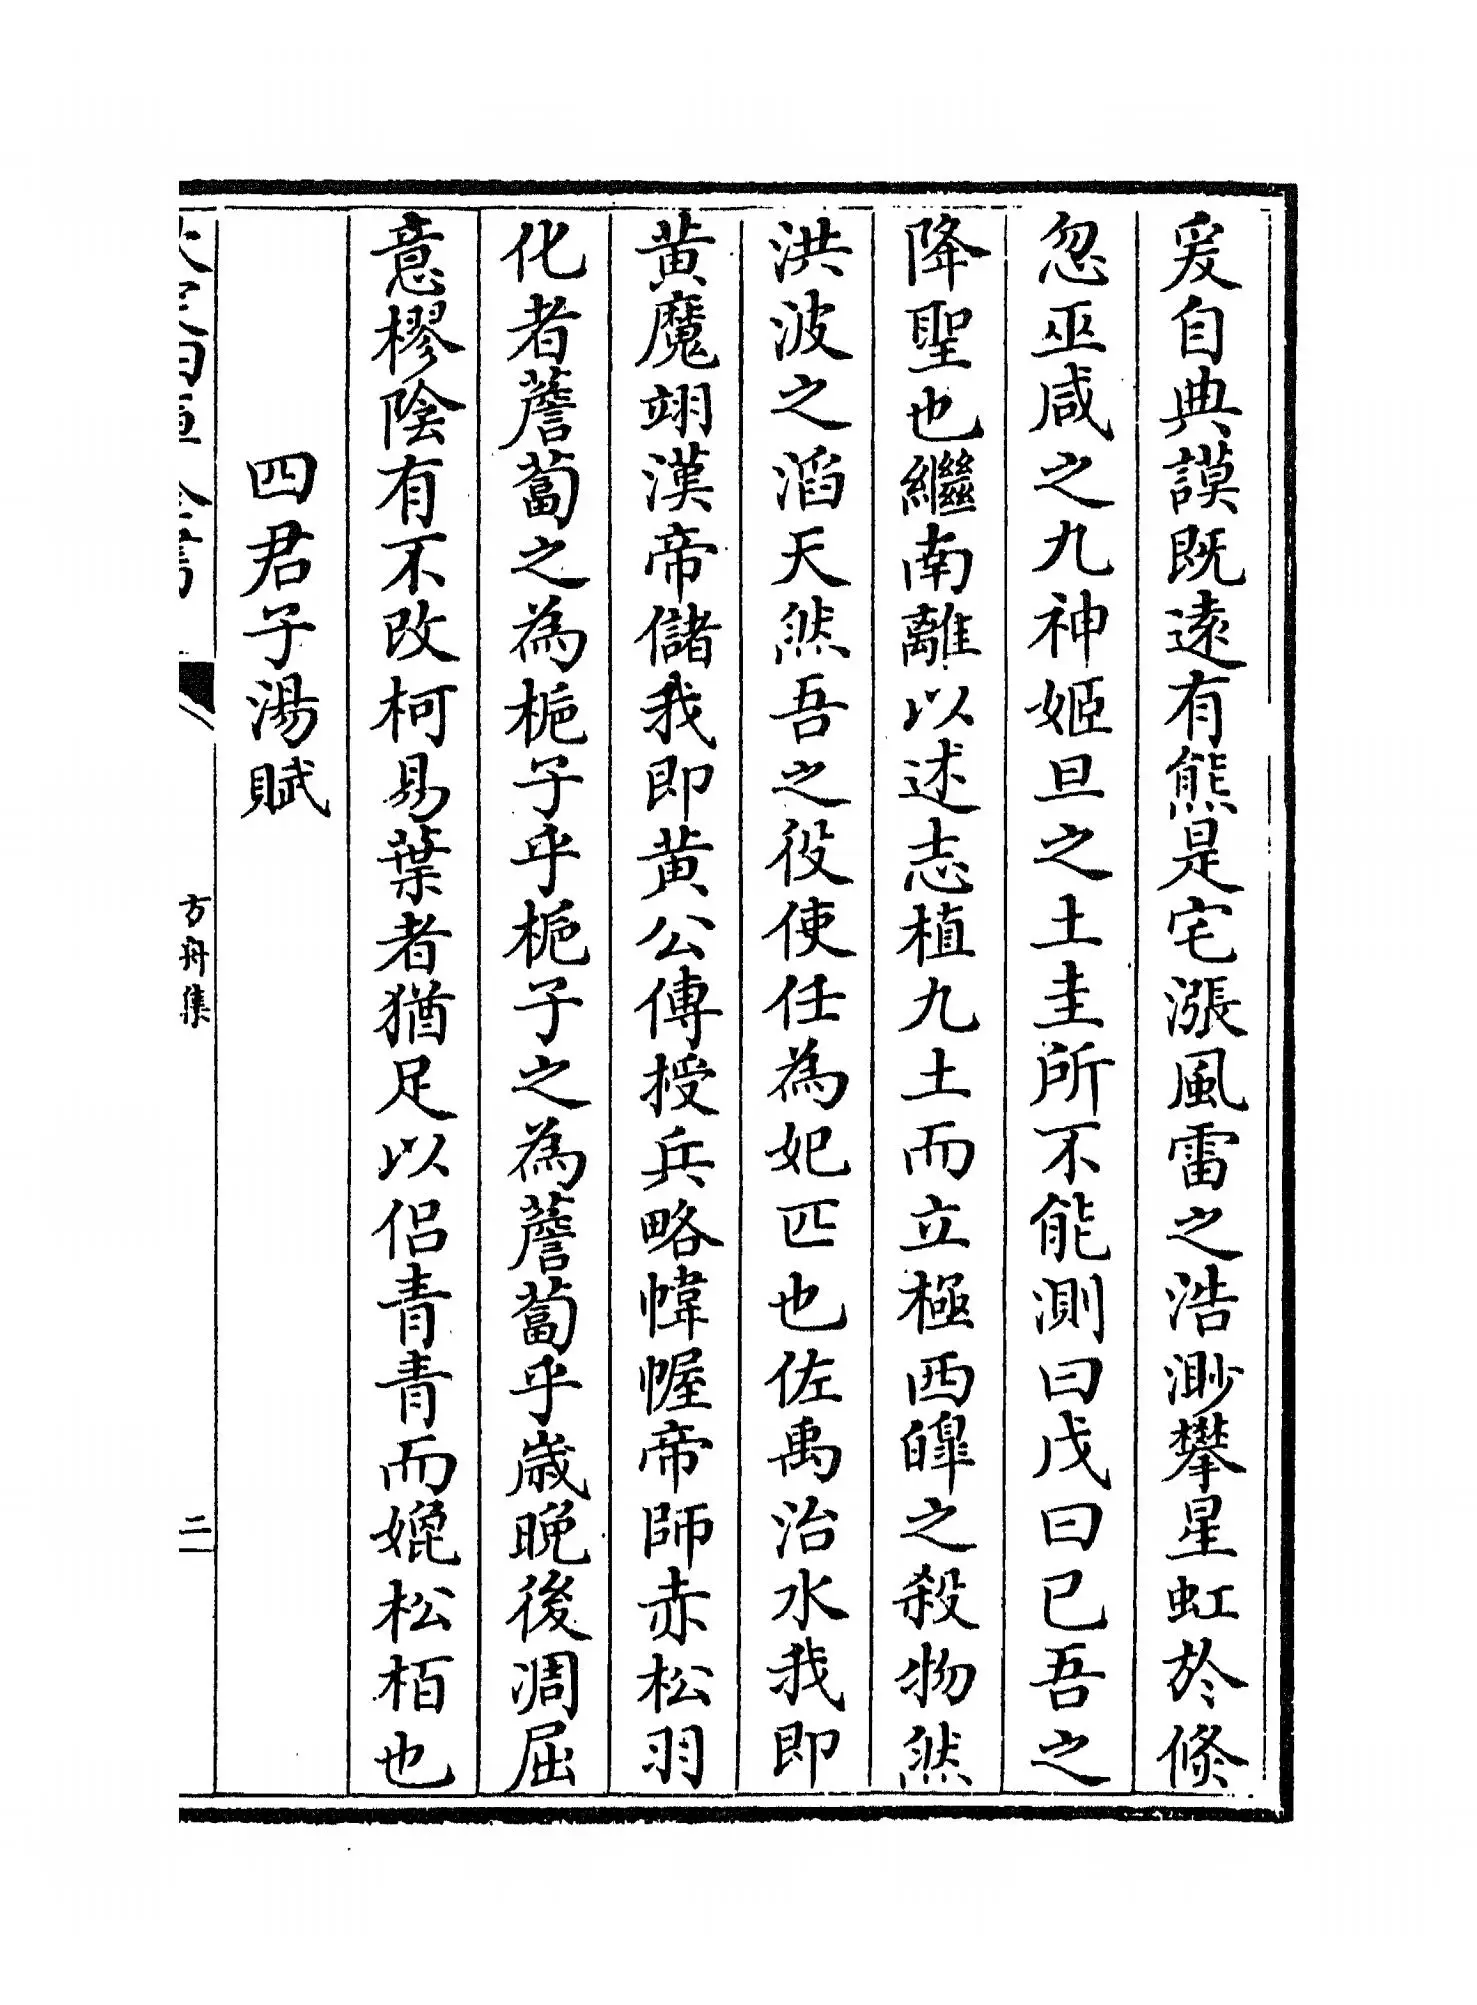 爰自典謨既遠有熊是宅漲風雷之浩渺攀星虹於倏
忽巫咸之九神姬旦之土圭所不能測曰戊曰已吾之
降聖也繼南離以述志植九土而立極西皥之殺物然
洪波之滔天然吾之役使任為妃匹也佐禹治水我即
黄魔翊漢帝儲我即黄公傳授兵略幃幄帝師赤松羽
化者薝蔔之為梔子乎梔子之為薝蔔乎歲晚後凋屈
意樛陰有不改柯易葉者猶足以侣青青而媲松栢也
四君子湯賦
方舟集
二